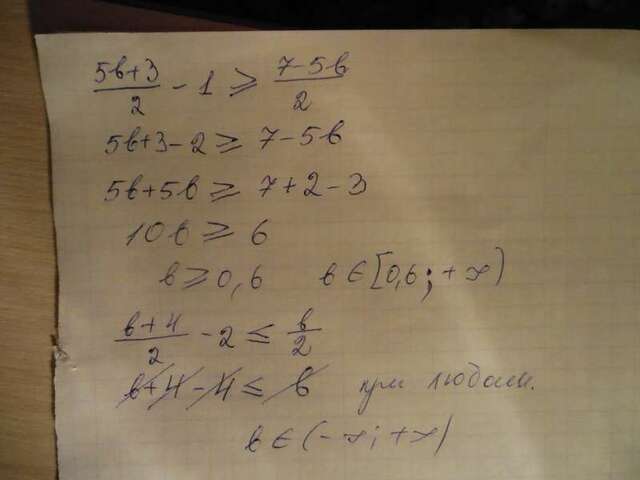 (5b+3)/2 - 1 ⩾ (7-5b)/2
5b+3-2 ⩾ 7-5b
5b+5b ⩾ 7+2-3
10b ⩾ 6
b ⩾ 0,6 b ∈ [0,6; +∞)
(b+4)/2 - 2 ⩽ b/2
b+4-4 ⩽ b при любом.
b ∈ (-∞; +∞)